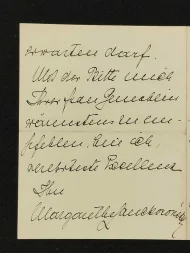 erwarten darf.
Mit der Bitte mich
Ihrer Frau Gemahlin
wärmstens zu em-
pfehlen, bin ich,
verehrteste Excellenz
Ihre
Margarethe Lanckorońska